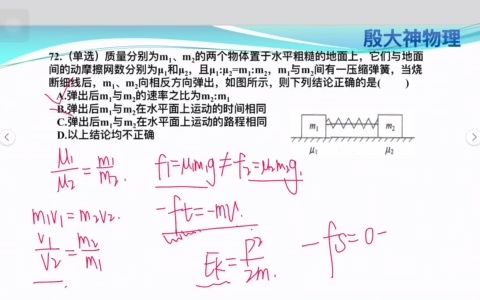 殷大神物理
72.（单选）质量分别为m₁、m₂的两个物体置于水平粗糙的地面上，它们与地面
间的动摩擦网数分别为μ₁和μ₂，且μ₁:μ₂=m₁:m₂，m₁与m₂间有一压缩弹簧，当烧
断细线后，m₁、m₂向相反方向弹出，如图所示，则下列结论正确的是(　　)
A.弹出后m₁与m₂的速率之比为m₂:m₁
B.弹出后m₁与m₂在水平面上运动的时间相同
C.弹出后m₁与m₂在水平面上运动的路程相同
D.以上结论均不正确
m₁ m₂
μ₁ μ₂
μ₁/μ₂=m₁/m₂ f₁=μ₁m₁g≠f₂=μ₂m₂g.
m₁v₁=m₂v₂. -ft=-mv.
v₁/v₂=m₂/m₁ Ek=P²/2m. -fs=0-